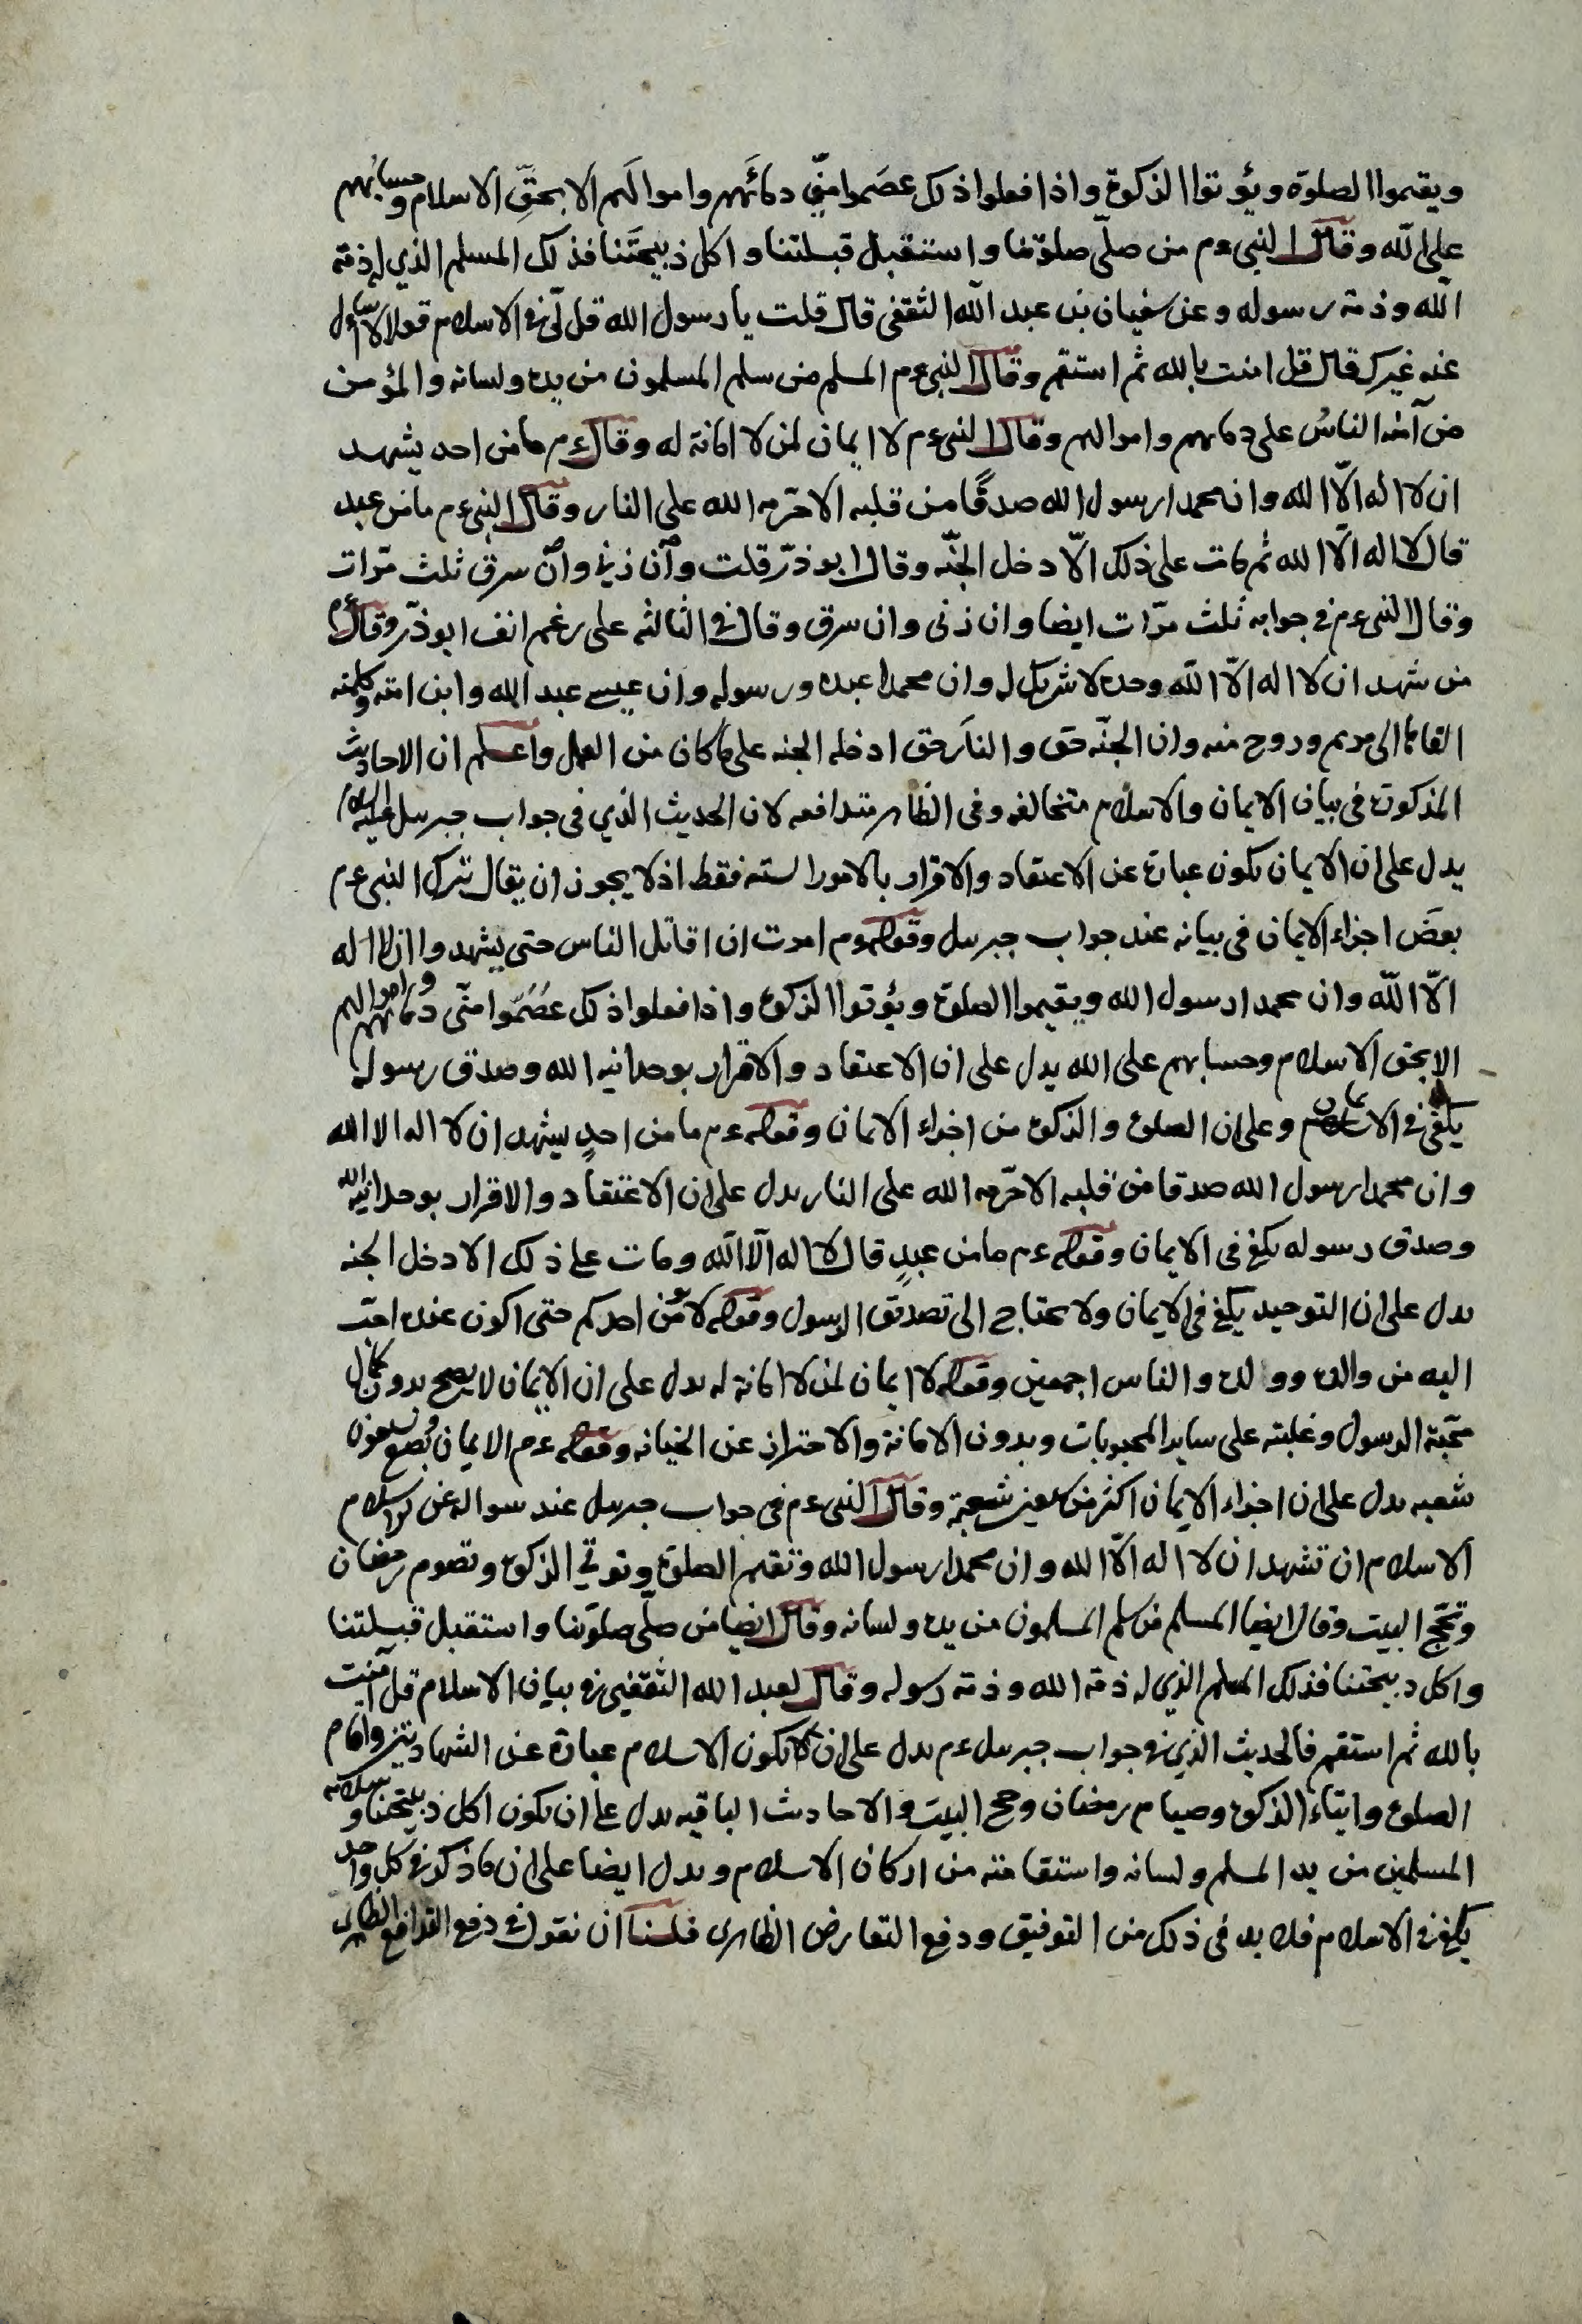 ويقيموا الصلوة ويؤتوا الزكوة واذا فعلوا ذلك عصموا منّي دمائهم واموالهم الا بحقّ الاسلام وحسابهم
على الله وقال النبى ءم من صلّى صلوتنا واستقبل قبلتنا واكل ذبيحتنا فذلك المسلم الذي له ذمة
الله وذمة رسوله وعن سفيان بن عبد الله الثقفى قال قلت يا رسول الله قل لى فى الاسلام قولا لا اسأل
عنه غيرك قال قل امنت بالله ثم استقم وقال النبى ءم المسلم من سلم المسلمون من يده ولسانه والمؤمن
من آمنه الناس على دمائهم واموالهم وقال النبى ءم لا ايمان لمن لا امانة له وقال ءم ما من احد يشهد
ان لا اله الّا الله وان محمدا رسول الله صدقًا من قلبه الا حرّمه الله على النار وقال النبى ءم ما من عبد
قال لا اله الّا الله ثم مات على ذلك الّا دخل الجنّه وقال ابو ذرّ قلت وان زنى وان سرق ثلث مرّات
وقال النبى ءم فى جوابه ثلث مرّات ايضا وان زنى وان سرق وقال فى الثالثه على رغم انف ابو ذرّ وقال ءم
من شهد ان لا اله الّا الله وحده لا شريك له وان محمدا عبده ورسوله وان عيسى عبد الله وابن امته وكلمته
القاها الى مريم وروح منه وان الجنّه حق والنار حق ادخله الجنه على ما كان من العمل واعلم ان الاحاديث
المذكورة فى بيان الايمان والاسلام متخالفه وفى الظاهر متدافعه لان الحديث الذي فى جواب جبرسل عليه السلام
يدل على ان الايمان يكون عبارة عن الاعتقاد والاقرار بالامور الستة فقط اذ لا يجوز ان يقال ترك النبى ءم
بعض اجزاء الايمان فى بيانه عند جواب جبرسل وقوله ءم امرت ان اقاتل الناس حتى يشهدوا ان لا اله
الّا الله وان محمدا رسول الله ويقيموا الصلوة ويؤتوا الزكوة واذا فعلوا ذلك عصموا منّى دمائهم واموالهم
الا بحق الاسلام وحسابهم على الله يدل على ان الاعتقاد والاقرار بوحدانيه الله وصدق رسوله
يكفى فى الايمان وعلى ان الصلوة والزكوة من اجزاء الايمان وقوله ءم ما من احدٍ يشهد ان لا اله الا الله
وان محمدا رسول الله صدقا من قلبه الا حرّمه الله على النار يدل على ان الاعتقاد والاقرار بوحدانيه الله
وصدق رسوله يكفى فى الايمان وقوله ءم ما من عبدٍ قال لا اله الّا الله ومات على ذلك الا دخل الجنه
يدل على ان التوحيد يكفى فى الايمان ولا يحتاج الى تصديق الرسول وقوله لا يؤمن احدكم حتى اكون عنده احبّ
اليه من والده وولده والناس اجمعين وقوله لا ايمان لمن لا امانة له يدل على ان الايمان لا يصح بدون كمال
محبّة الرسول وغلبته على ساير المحبوبات وبدون الامانة والاحتراز عن الخيانه وقوله ءم الايمان بضع وسبعون
شعبه يدل على ان اجزاء الايمان اكثر من سبعين شعبة وقال النبى ءم فى جواب جبرسل عند سواله عن الاسلام
الاسلام ان تشهد ان لا اله الّا الله وان محمدا رسول الله وتقيم الصلوة وتوتي الزكوة وتصوم رمضان
وتحجّ البيت وقال ايضا المسلم من سلم المسلمون من يده ولسانه وقال ايضا من صلّى صلوتنا واستقبل قبلتنا
واكل ذبيحتنا فذلك المسلم الذي له ذمة الله وذمة رسوله وقال لعبد الله الثقفى فى بيان الاسلام قل آمنت
بالله ثم استقم فالحديث الذي فى جواب جبرسل ءم يدل على ان يكون الاسلام عبارة عن الشهادتين واقام
الصلوة وايتاء الزكوة وصيام رمضان وحج البيت والاحاديث الباقيه يدل على ان يكون اكل ذبيحتنا وسلامة
المسلمين من يد المسلم ولسانه واستقامته من اركان الاسلام ويدل ايضا على ان ما ذكر فى كل واحد
يكفى فى الاسلام فلا بد فى ذلك من التوفيق ودفع التعارض الظاهرى فلنا ان نقول فى دفع التدافع الظاهرى